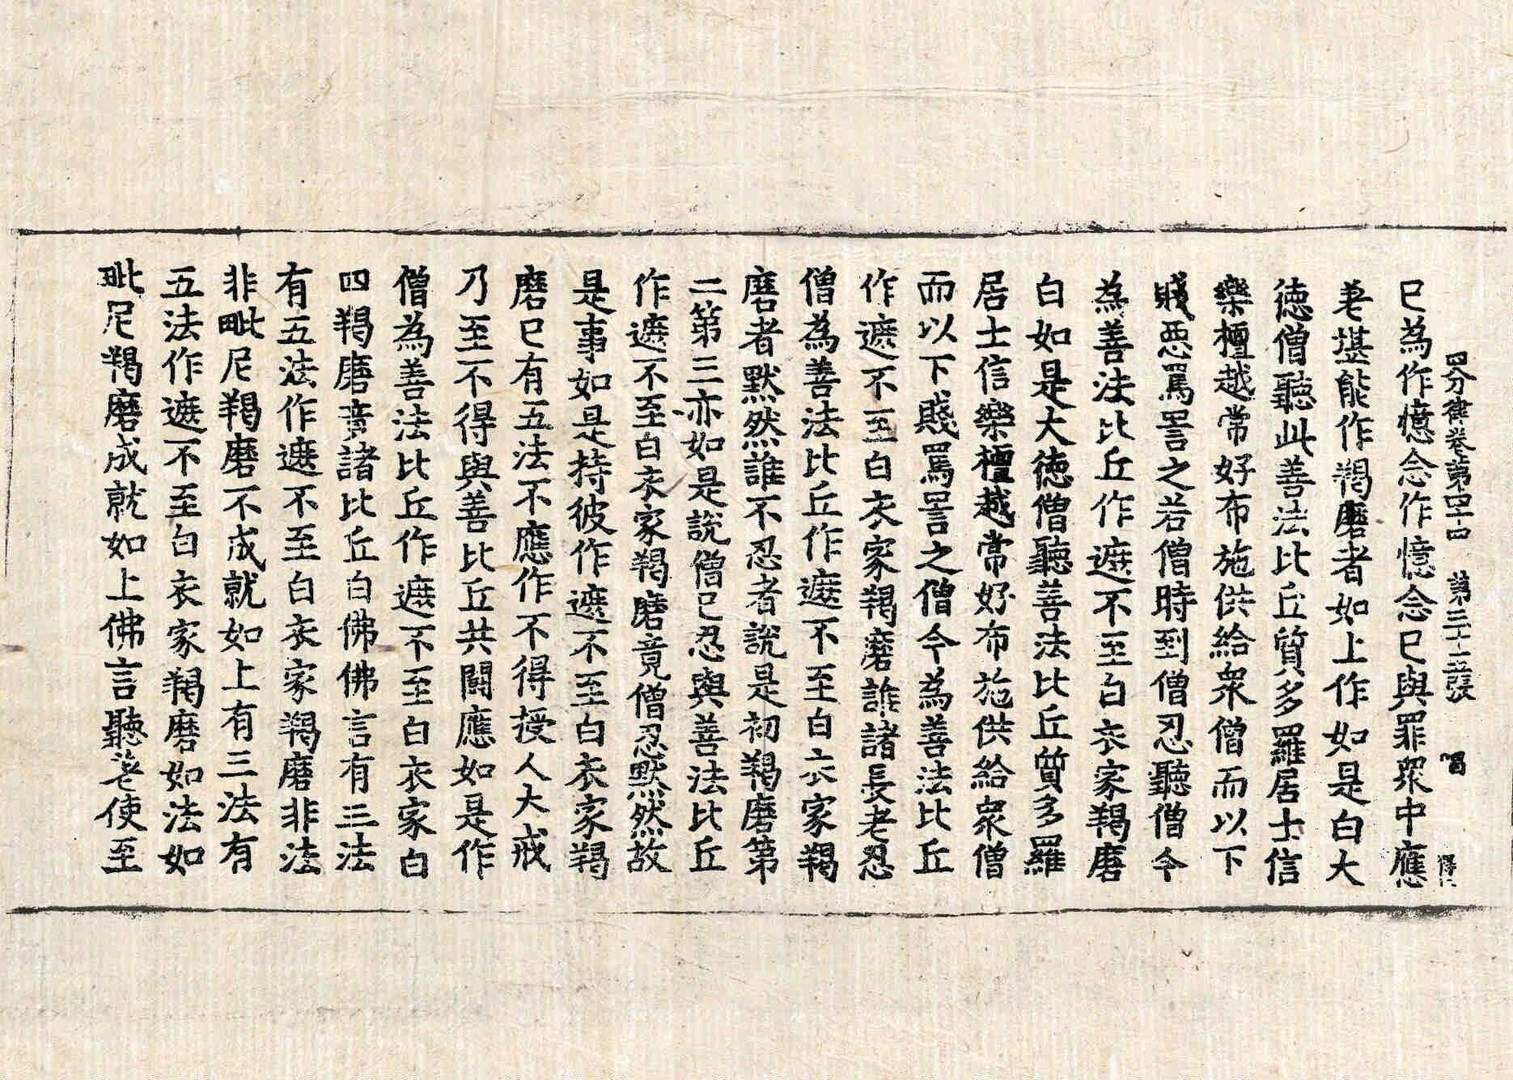 四分律卷第四十四 第三十三張 唱
已為作憶念作憶念已與罪眾中應
差堪能作羯磨者如上作如是白大
德僧聽此善法比丘質多羅居士信
樂檀越常好布施供給眾僧而以下
賤惡罵詈之若僧時到僧忍聽僧今
為善法比丘作遮不至白衣家羯磨
白如是大德僧聽善法比丘質多羅
居士信樂檀越常好布施供給眾僧
而以下賤罵詈之僧今為善法比丘
作遮不至白衣家羯磨誰諸長老忍
僧為善法比丘作遮不至白衣家羯
磨者默然誰不忍者說是初羯磨第
二第三亦如是說僧已忍與善法比丘
作遮不至白衣家羯磨竟僧忍默然故
是事如是持彼作遮不至白衣家羯
磨已有五法不應作不得授人大戒
乃至不得與善比丘共鬪應如是作
僧為善法比丘作遮不至白衣家白
四羯磨竟諸比丘白佛佛言有三法
有五法作遮不至白衣家羯磨非法
非毗尼羯磨不成就如上有三法有
五法作遮不至白衣家羯磨如法如
毗尼羯磨成就如上佛言聽差使至